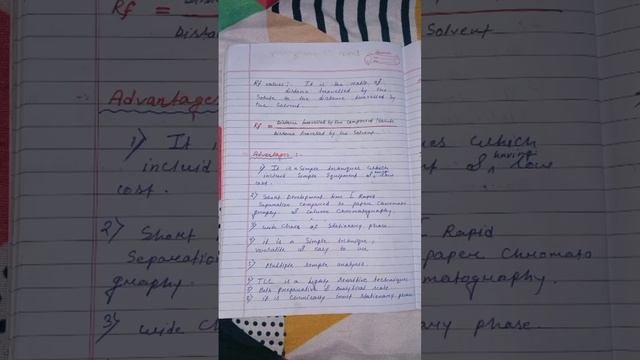 Rf values : It is the ratio of
distance travelled by the
Solute to the distance travelled by
the Solvent.
Rf = Distance travelled by the compound / Solute
Distance travelled by the Solvent.
Advantages :-
1) It is a Simple techniques which
includ Simple Equipment of having low
cost.
2) Short Development time & Rapid
Separation compared to paper chromato
graphy & column chromatography.
3) wide choice of Stationary phase.
4) it is a Simple technique,
versatile & easy to use
5) Multiple sample analysis.
6) TLC is a highly sensitive techniques
7) Both preparative & analytical scale
8) it is chemically inert stationary phase